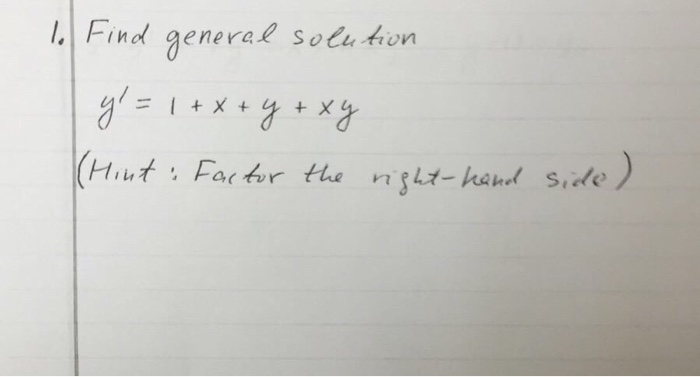 1. Find general solution
y' = 1 + x + y + xy
(Hint : Factor the right-hand side)